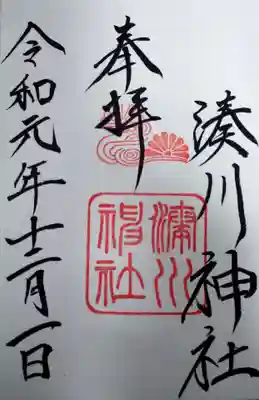 湊川神社
奉拝
湊川神社
令和元年十二月一日